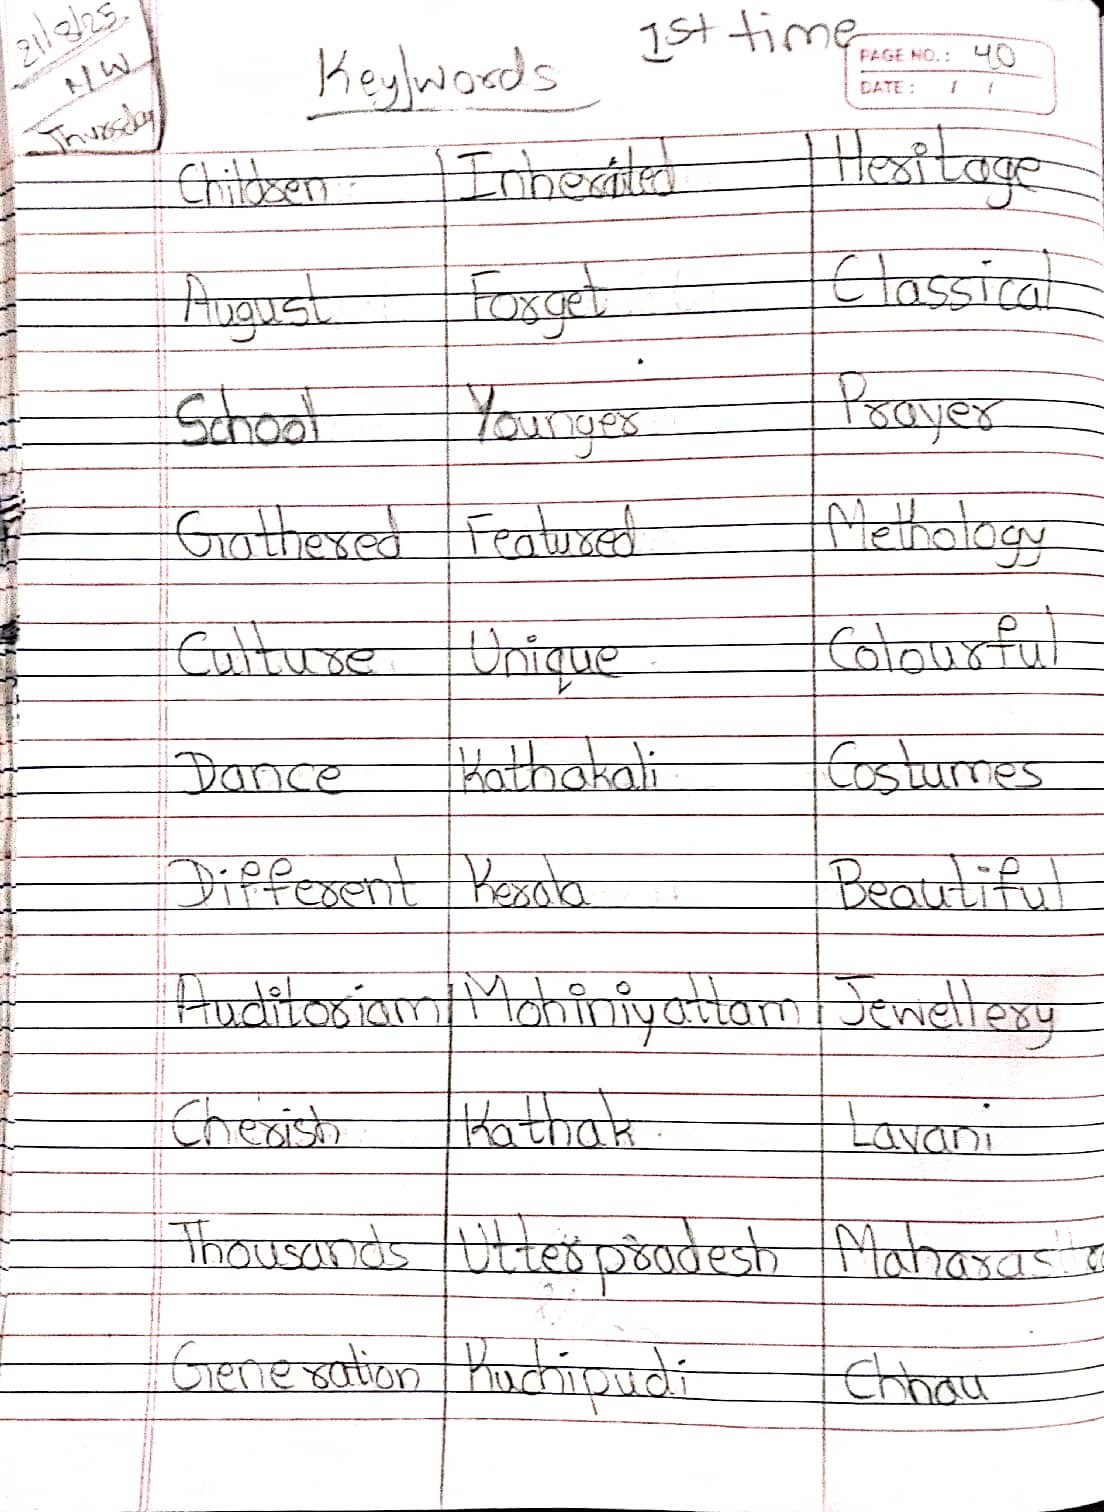 21/8/25
HW
Thursday
1st time
PAGE NO.: 40
DATE: / /
Keywords
Children Inherited Heritage
August Forget Classical
School Younger Prayer
Gathered Featured Methology
Culture Unique Colourful
Dance Kathakali Costumes
Different Kerala Beautiful
Auditoriam Mohiniyattam Jewellery
Cherish Kathak Lavani
Thousands Utterpradesh Maharastra
Generation Kuchipudi Chhau